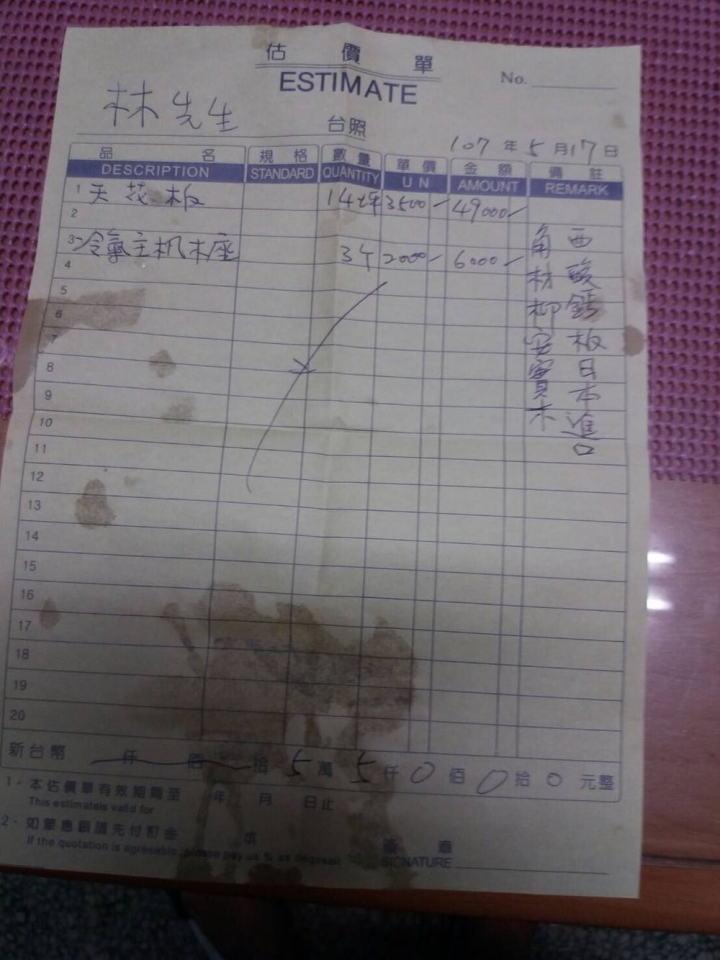 估價單
ESTIMATE
No.
林先生
台照
107年5月17日
品名 規格 數量 單價 金額 備註
DESCRIPTION STANDARD QUANTITY U N AMOUNT REMARK
1 天花板 14坪 3500 49000
2
3 冷氣主机木座 3个 2000 6000
4
5
6
7
8
9
10
11
12
13
14
15
16
17
18
19
20
西酸鈣板日本進口
角材柳安實木
新台幣 仟 佰 拾 5 萬 5 仟 0 佰 0 拾 0 元整
1·本估價單有效期間至 年 月 日止
This estimateis valid for
2·如蒙惠顧請先付訂金
if the quotation is agreeable, please pay us % as deposit
SIGNATURE